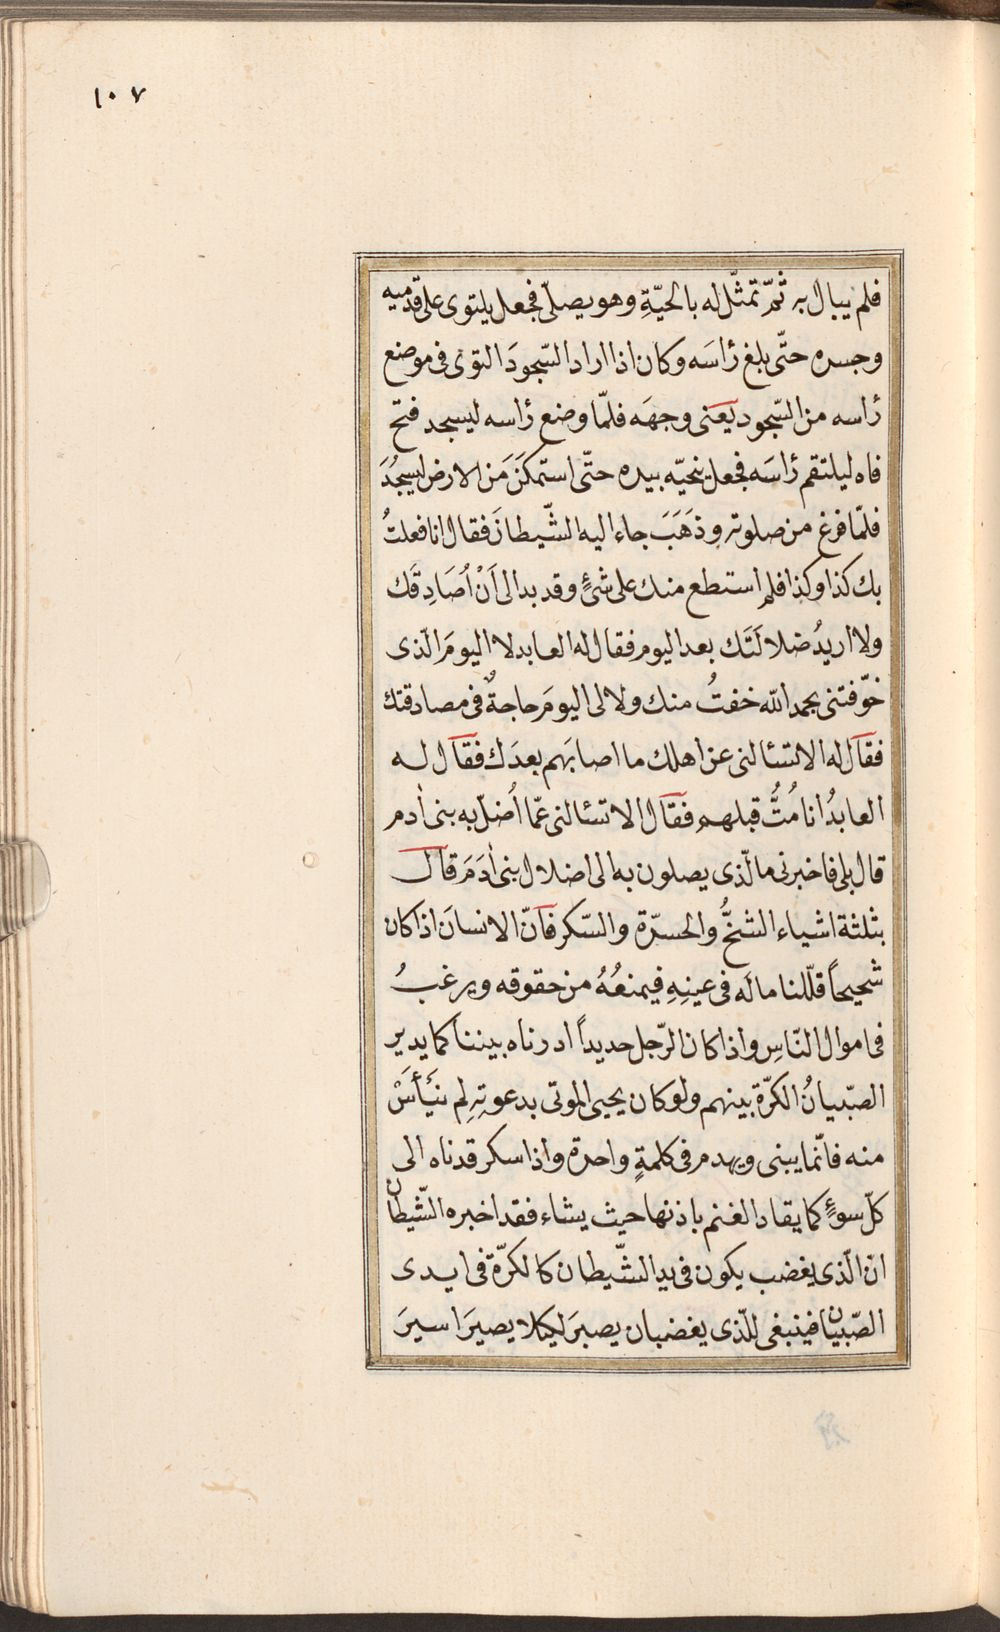 ١٠٧
فلم يبال به ثمّ تمثّل له بالحيّةِ وهو يصلّى فجعل يلتوى على قدميه
وجسده حتّى بلغ رٔاسَه وكان اذا اراد السّجودَ التوى فى موضع
رٔاسه من السّجود يَعنى وجهَه فلمّا وضع رٔاسه ليسجد فتح
فاه ليلتقم رٔاسَه فجعل ينحيّه بيده حتّى استمكَنَ مَن الارض ليسجُدَ
فلمّا فرغ من صلوته وذهَبَ جاء اليه الشّيطانَ فقال انا فعلتُ
بك كذا وكذا فلم استطع منك على شئٍ وقد بدا لى اَنْ اُصَادِقَك
ولا اريدُ ضلالَتَك بعد اليوم فقال له العابد لا اليومَ الّذى
خوّفتنى بحمد الله خفتُ منك ولا لى اليومَ حاجةٌ فى مصادقتك
فقال له الا تسئالنى عن اهلك ما اصابَهم بعدَك فقال له
العابدُ انا مُتُّ قبلهم فقال الا تسئالنى عمّا اُضلّ به بنى اٰدم
قال بلى فاخبرنى ما لّذى يصلون به الى اضلال بنى اٰدَمَ قال
بثلثة اشياء الشخُّ والحسدّة والسّكر فانّ الانسانَ اذا كان
شحيحاً قلّلنا مالَه فى عينِهِ فيمنعُهُ من حقوقه ويرغبُ
فى اموال النّاسِ واذا كان الرّجل حديداً ادرناه بيننا كما يدير
الصّبيانُ الكرّة بينهم ولو كان يحيى الموتى بدعوتِهِ لم نيَأَسْ
منه فانّما يبنى ويهدم فى كلمةٍ واحدة واذا سكر قدناه الى
كلّ سوءٍ كما يقاد الغنم باذنها حيث يشاء فقد اخبره الشّيطان
انّ الّذى يغضب يكون فى يد الشّيطان كالكرّة فى ايدى
الصّبيان فينبغى للّذى يغضب ان يصبرَ ليكلا يصيرَ اسيرَ